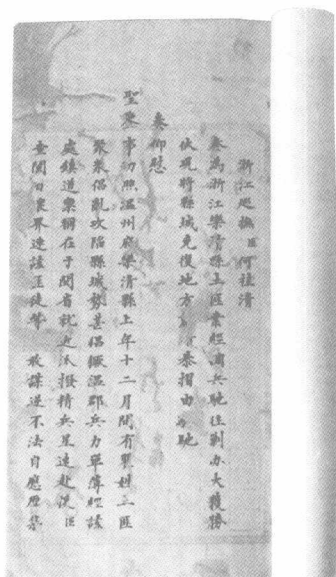 浙江巡撫臣何桂清
奏為浙江樂清縣土匪業經官兵馳往剿办大獲勝
仗見將縣城克復地方恭摺由馳
奏仰慰
聖懷事切照溫州府樂清縣上年十二月間有瞿姓土匪
聚衆倡亂攻陷縣城勢甚猖獗溫郡兵力單薄經該
處鎮道稟在于閩省就近派撥精兵星速赴援臣
查閱界連該匪徒等敢謀逆不法自應厚集